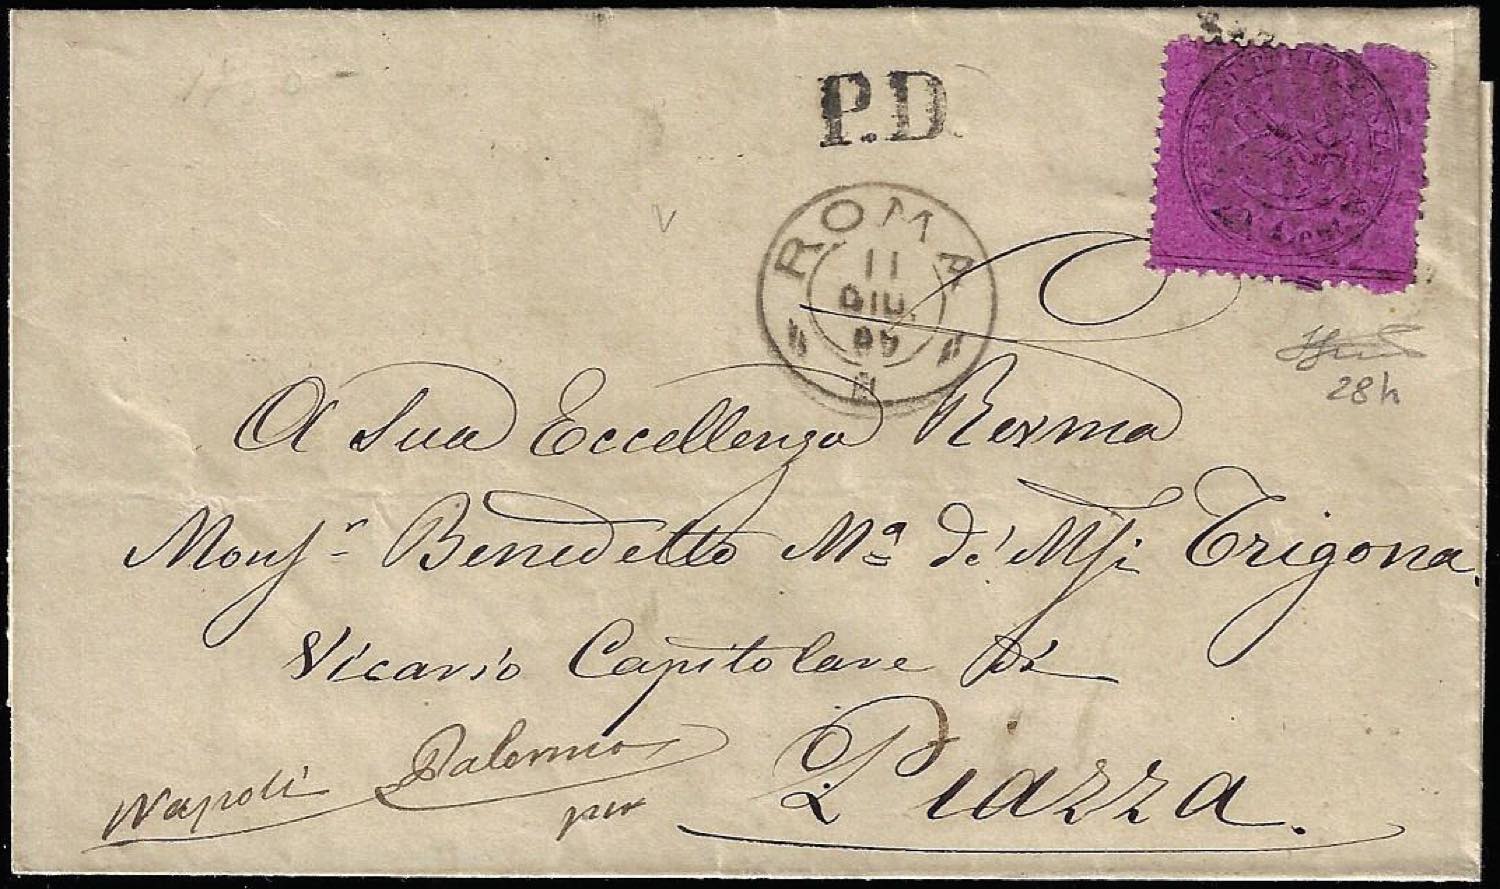 P.D.
ROMA
11
GIU.
28h
A Sua Eccellenza Revma
Monsr Benedetto Ma de' Msi Trigona
Vicario Capitolare di
Napoli Palermo per Piazza.